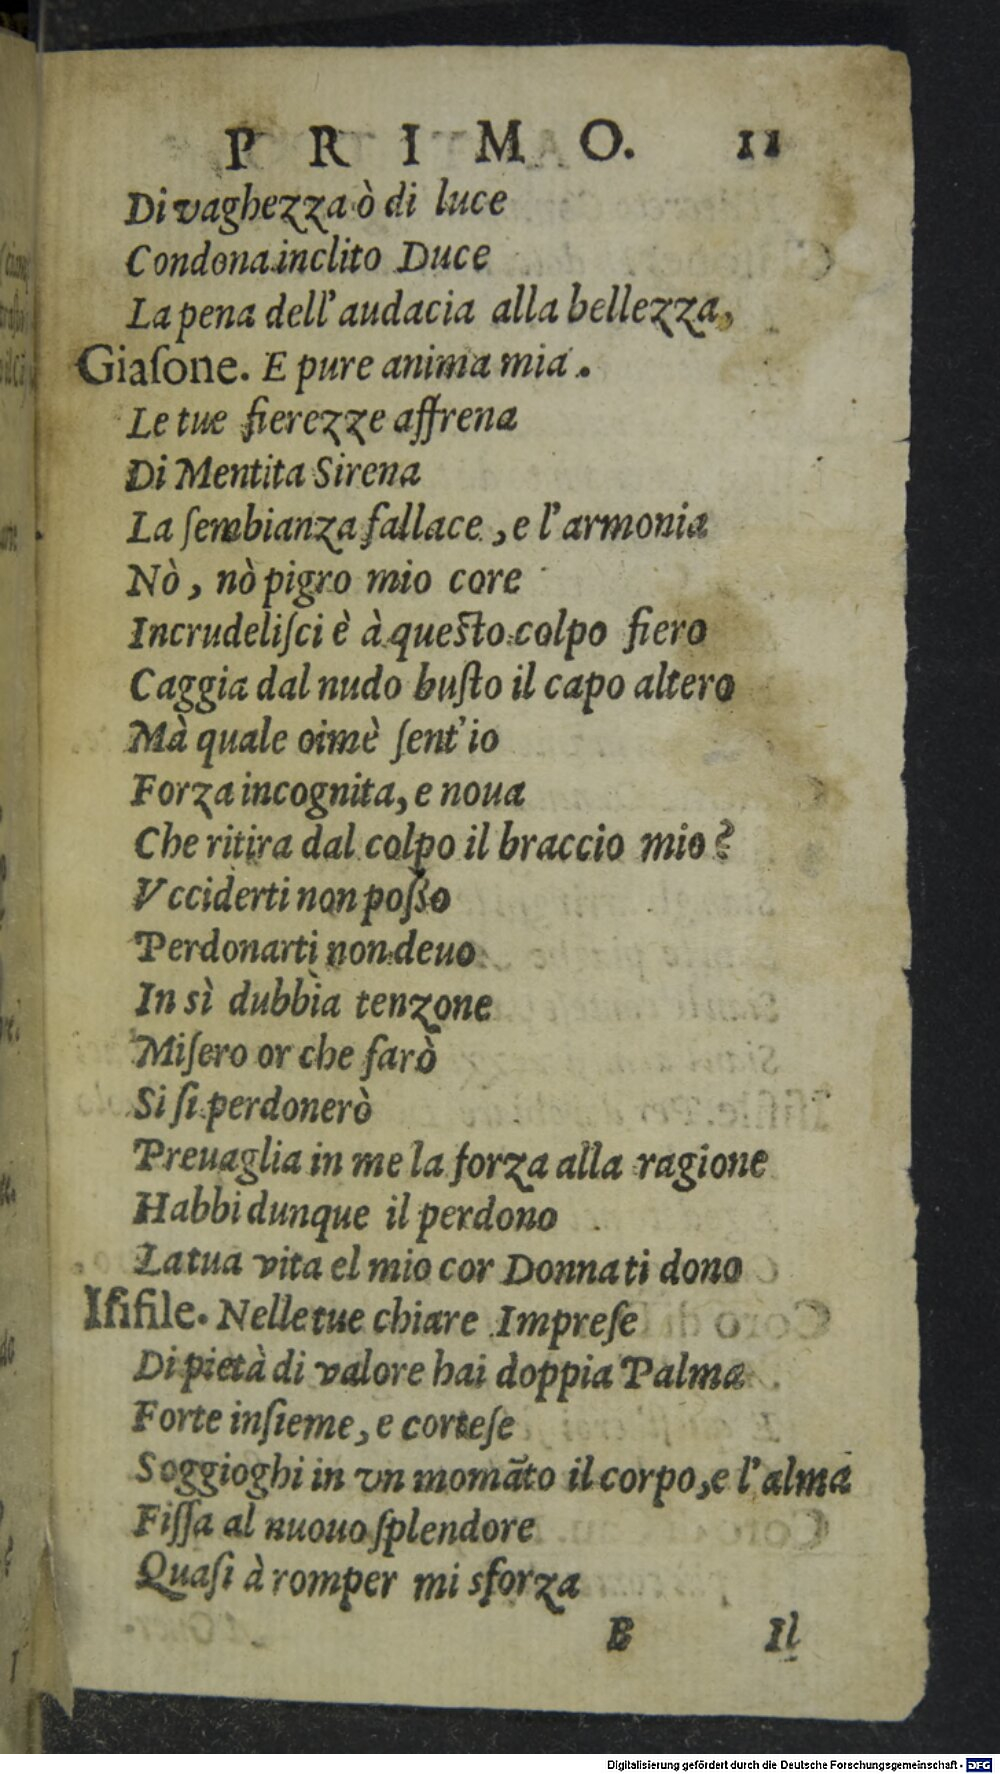 PRIMO. 11
Di vaghezza ò di luce
Condona inclito Duce
La pena dell'audacia alla bellezza,
Giaſone. E pure anima mia.
Le tue fierezze affrena
Di Mentita Sirena
La ſembianza fallace, e l'armonia
Nò, nò pigro mio core
Incrudeliſci è à queſto colpo fiero
Caggia dal nudo buſto il capo altero
Mà quale oimè ſent'io
Forza incognita, e noua
Che ritira dal colpo il braccio mio?
Vcciderti non poſſo
Perdonarti non deuo
In sì dubbia tenzone
Miſero or che farò
Si ſi perdonerò
Preuaglia in me la forza alla ragione
Habbi dunque il perdono
La tua vita el mio cor Donna ti dono
Iſifile. Nelle tue chiare Impreſe
Di pietà di valore hai doppia Palma
Forte inſieme, e corteſe
Soggioghi in vn momāto il corpo, e l'alma
Fiſſa al nuouo ſplendore
Quaſi à romper mi sforza
B Il
Digitalisierung gefördert durch die Deutsche Forschungsgemeinschaft - DFG